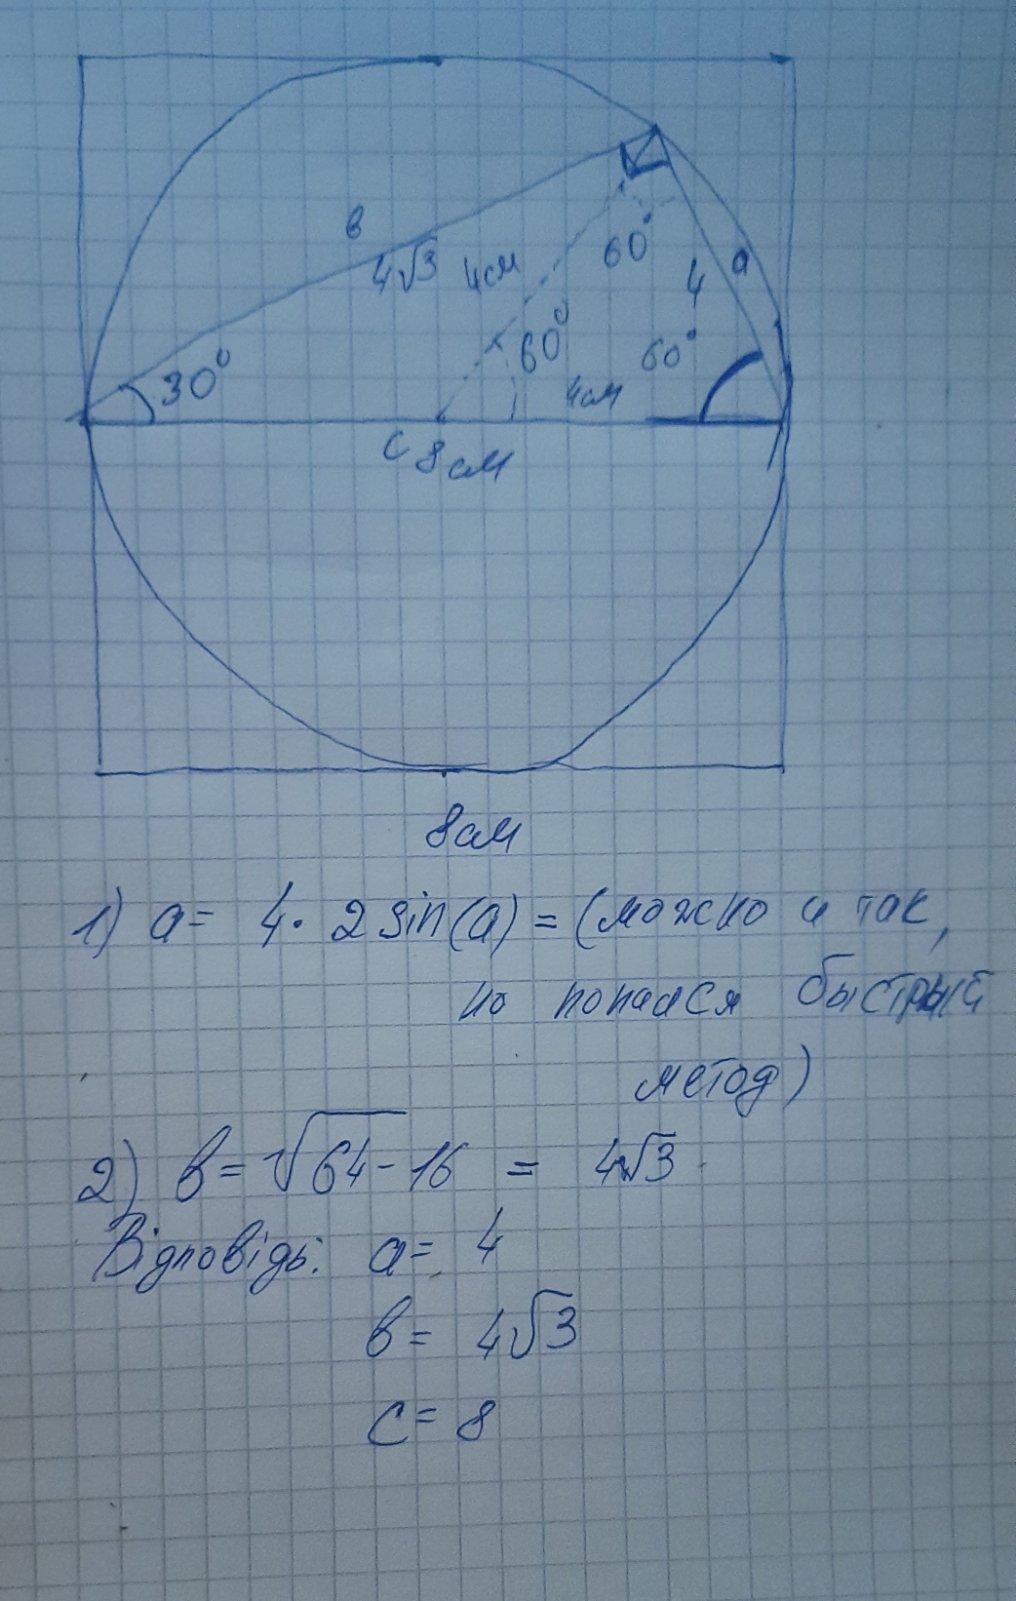 в
4√3
4см
60°
a
4
60°
60°
30°
4см
c 8см
8см
1) a= 4· 2 sin(a) = (можно и так,
но попался быстрый
метод)
2) в= √64-16 = 4√3
Відповідь: a= 4
в= 4√3
c= 8